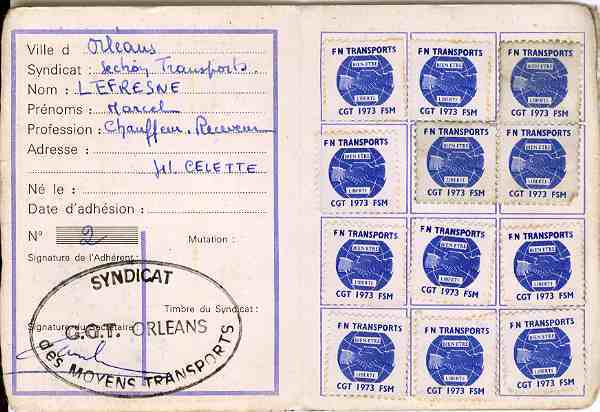 Ville d Orléans
Syndicat : Section Transports
Nom : LEFRESNE
Prénoms : Marcel
Profession : Chauffeur. Receveur
Adresse :
CELETTE
Né le :
Date d'adhésion :
N° 2
Mutation :
Signature de l'Adhérent :
Timbre du Syndicat :
Signature du Secrétaire
SYNDICAT
C.G.T. ORLEANS
des MOYENS TRANSPORTS
FN TRANSPORTS
BIEN ETRE
LIBERTE
CGT 1973 FSM
FN TRANSPORTS
BIEN ETRE
LIBERTE
CGT 1973 FSM
FN TRANSPORTS
BIEN ETRE
LIBERTE
CGT 1973 FSM
FN TRANSPORTS
BIEN ETRE
LIBERTE
CGT 1973 FSM
FN TRANSPORTS
BIEN ETRE
LIBERTE
CGT 1973 FSM
FN TRANSPORTS
BIEN ETRE
LIBERTE
CGT 1973 FSM
FN TRANSPORTS
BIEN ETRE
LIBERTE
CGT 1973 FSM
FN TRANSPORTS
BIEN ETRE
LIBERTE
CGT 1973 FSM
FN TRANSPORTS
BIEN ETRE
LIBERTE
CGT 1973 FSM
FN TRANSPORTS
BIEN ETRE
LIBERTE
CGT 1973 FSM
FN TRANSPORTS
BIEN ETRE
LIBERTE
CGT 1973 FSM
FN TRANSPORTS
BIEN ETRE
LIBERTE
CGT 1973 FSM